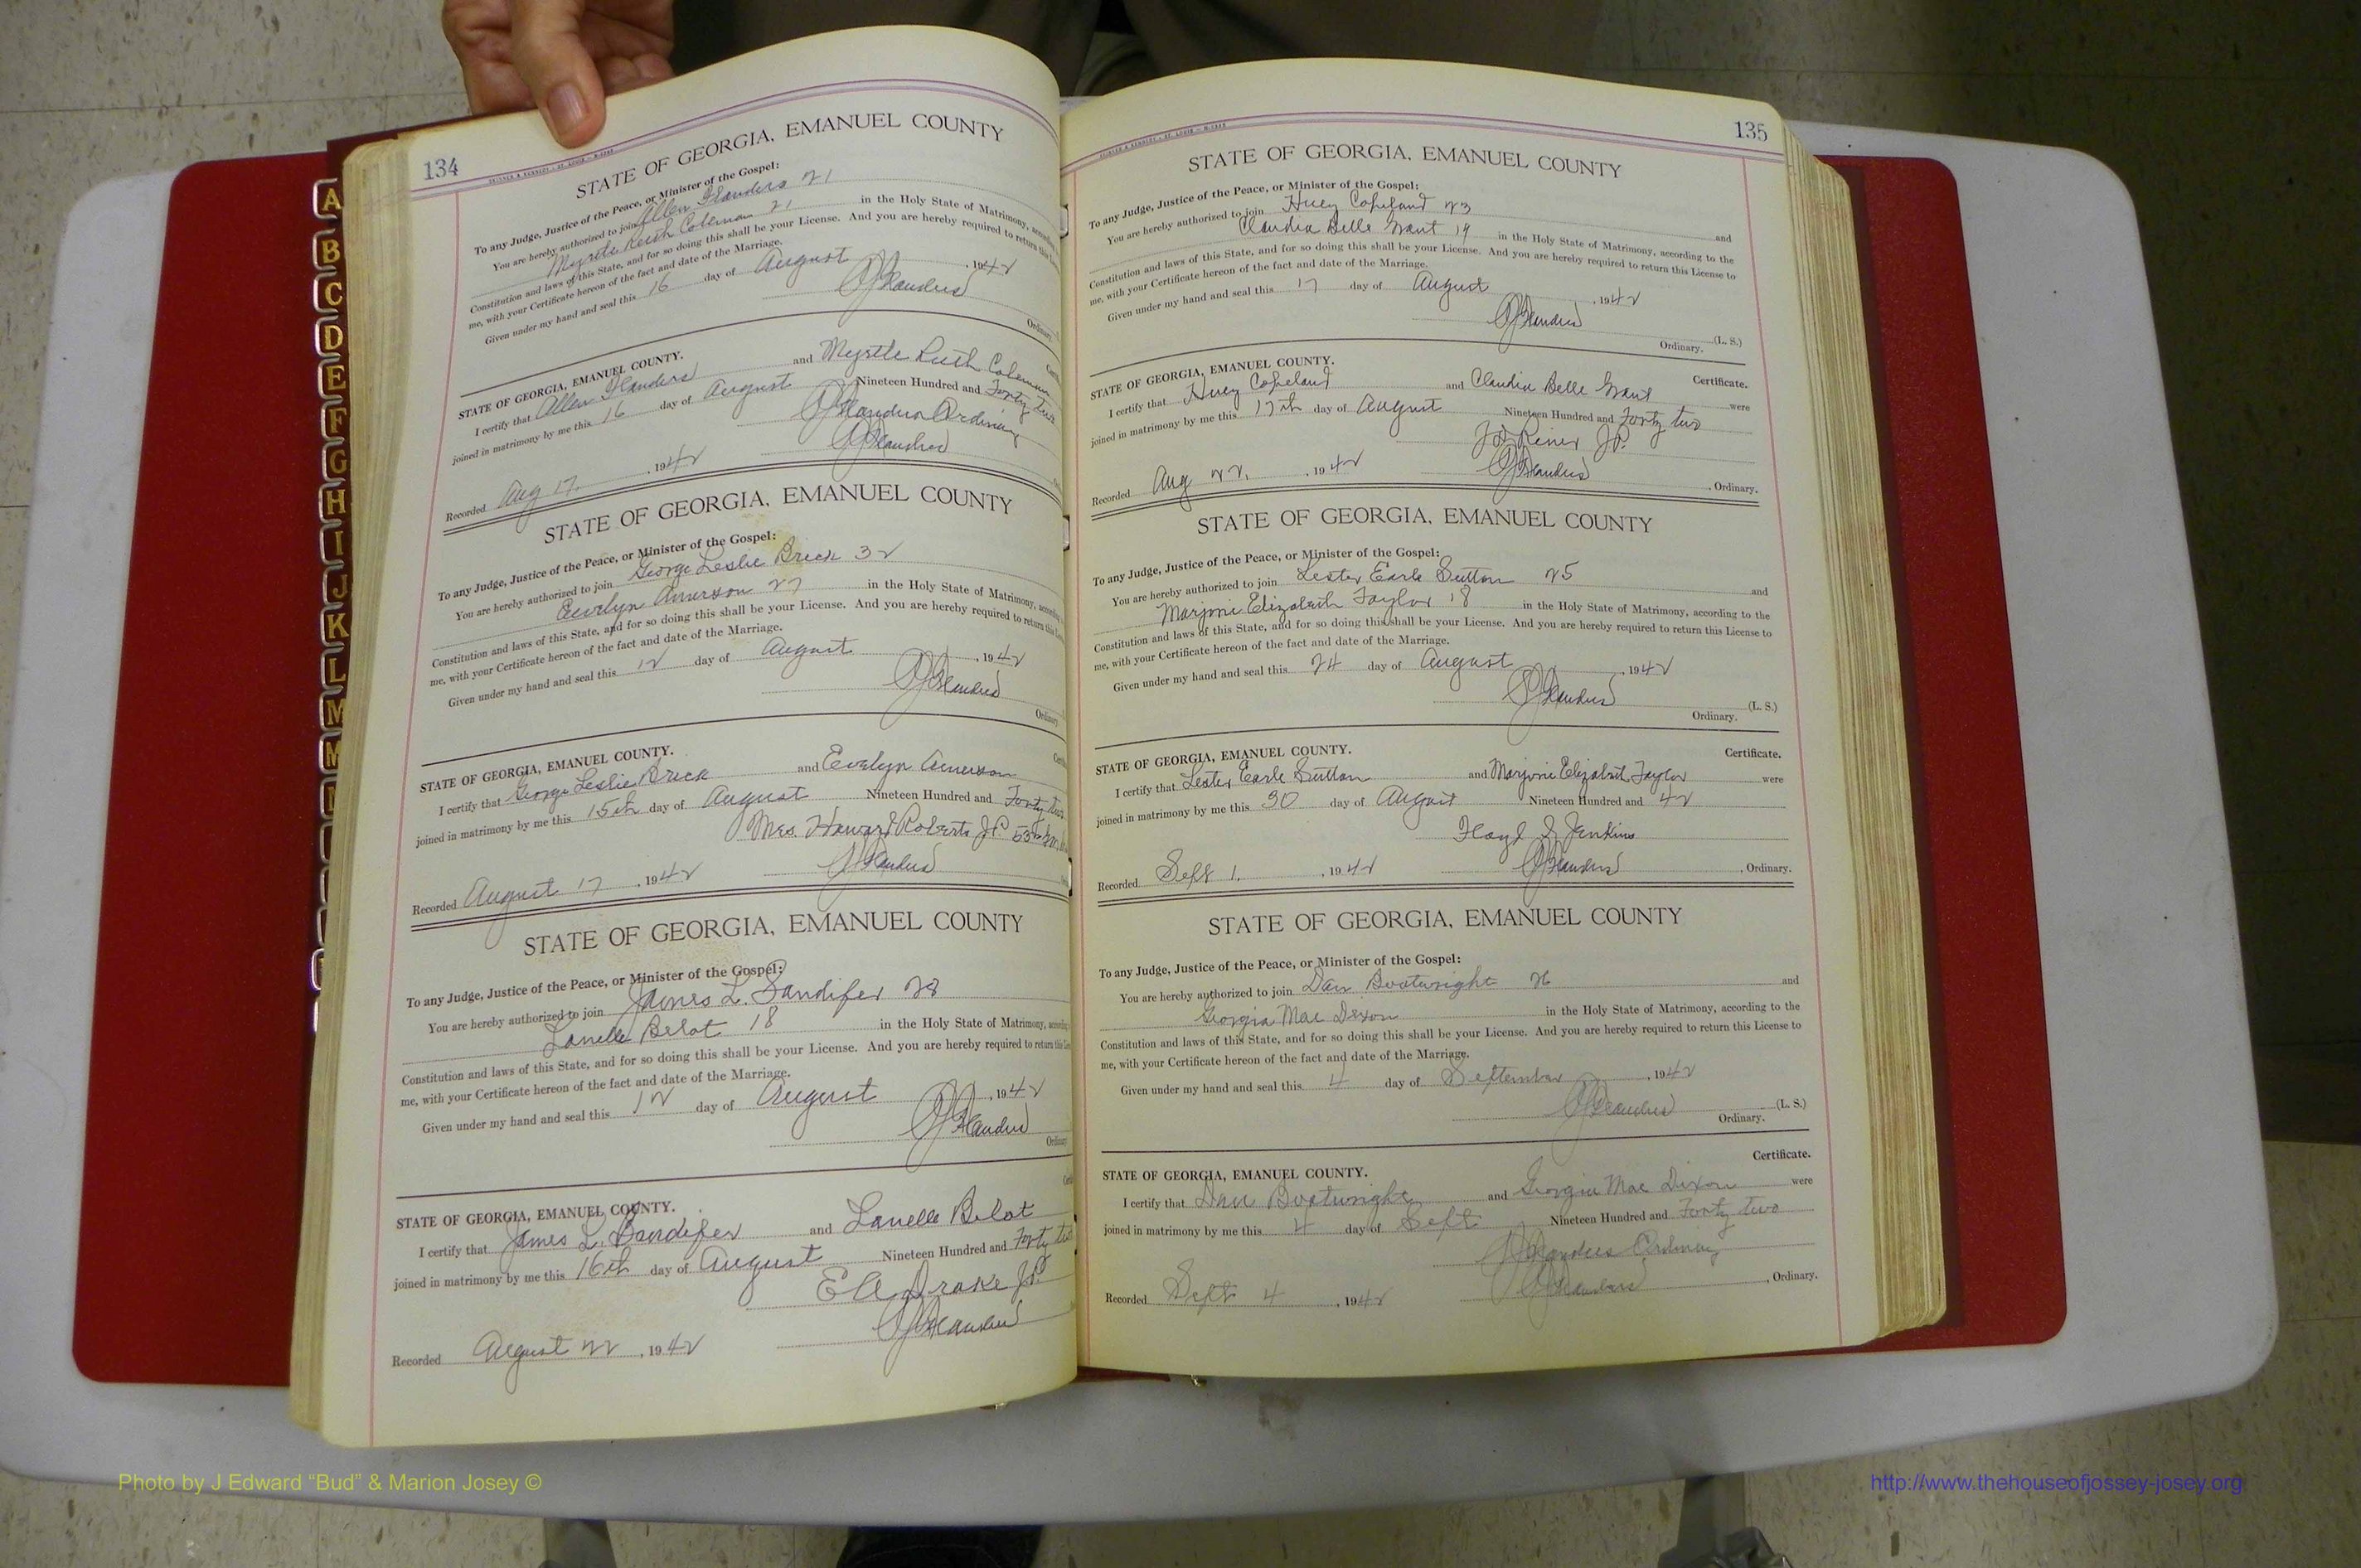 134
STATE OF GEORGIA, EMANUEL COUNTY
To any Judge, Justice of the Peace, or Minister of the Gospel:
You are hereby authorized to join Allen Flanders 21
Myrtle Ruth Coleman 21 in the Holy State of Matrimony,
Constitution and laws of this State, and for so doing this shall be your License. And you are hereby required to return this
me, with your Certificate hereon of the fact and date of the Marriage.
Given under my hand and seal this 16 day of August, 1942
Ordinary
STATE OF GEORGIA, EMANUEL COUNTY.
I certify that Allen Flanders and Myrtle Ruth Coleman
joined in matrimony by me this 16 day of August Nineteen Hundred and Forty two
Flanders Ordinary
Recorded Aug 17, 1942
STATE OF GEORGIA, EMANUEL COUNTY
To any Judge, Justice of the Peace, or Minister of the Gospel:
You are hereby authorized to join George Leslie Brick 32
Evelyn Amerson 27 in the Holy State of Matrimony,
Constitution and laws of this State, and for so doing this shall be your License. And you are hereby required to return this
me, with your Certificate hereon of the fact and date of the Marriage.
Given under my hand and seal this 12 day of August, 1942
Ordinary
STATE OF GEORGIA, EMANUEL COUNTY.
I certify that George Leslie Brick and Evelyn Amerson
joined in matrimony by me this 15th day of August Nineteen Hundred and Forty two
Mrs. Howard Roberts J.P. 53
Recorded August 17, 1942
STATE OF GEORGIA, EMANUEL COUNTY
To any Judge, Justice of the Peace, or Minister of the Gospel:
You are hereby authorized to join James L. Sandifer 28
Lanelle Belot 18 in the Holy State of Matrimony,
Constitution and laws of this State, and for so doing this shall be your License. And you are hereby required to return this
me, with your Certificate hereon of the fact and date of the Marriage.
Given under my hand and seal this 12 day of August, 1942
Ordinary
STATE OF GEORGIA, EMANUEL COUNTY.
I certify that James L. Sandifer and Lanelle Belot
joined in matrimony by me this 16th day of August Nineteen Hundred and Forty two
E A Drake J.P.
Recorded August 22, 1942
135
STATE OF GEORGIA, EMANUEL COUNTY
To any Judge, Justice of the Peace, or Minister of the Gospel:
You are hereby authorized to join Huey Copeland 23 and
Claudia Belle Grant 19 in the Holy State of Matrimony, according to the
Constitution and laws of this State, and for so doing this shall be your License. And you are hereby required to return this License to
me, with your Certificate hereon of the fact and date of the Marriage.
Given under my hand and seal this 17 day of August, 1942
(L. S.)
Ordinary.
Certificate.
STATE OF GEORGIA, EMANUEL COUNTY.
I certify that Huey Copeland and Claudia Belle Grant were
joined in matrimony by me this 17th day of August Nineteen Hundred and Forty two
Riner J.P.
Recorded Aug 22, 1942 Ordinary.
STATE OF GEORGIA, EMANUEL COUNTY
To any Judge, Justice of the Peace, or Minister of the Gospel:
You are hereby authorized to join Lester Earle Sutton 25 and
Marjorie Elizabeth Taylor 18 in the Holy State of Matrimony, according to the
Constitution and laws of this State, and for so doing this shall be your License. And you are hereby required to return this License to
me, with your Certificate hereon of the fact and date of the Marriage.
Given under my hand and seal this 24 day of August, 1942
(L. S.)
Ordinary.
Certificate.
STATE OF GEORGIA, EMANUEL COUNTY.
I certify that Lester Earle Sutton and Marjorie Elizabeth Taylor were
joined in matrimony by me this 30 day of August Nineteen Hundred and 42
Floyd Jenkins
Recorded Sept 1, 1942 Ordinary.
STATE OF GEORGIA, EMANUEL COUNTY
To any Judge, Justice of the Peace, or Minister of the Gospel:
You are hereby authorized to join Dan Boatwright 26 and
Georgia Mae Dixon in the Holy State of Matrimony, according to the
Constitution and laws of this State, and for so doing this shall be your License. And you are hereby required to return this License to
me, with your Certificate hereon of the fact and date of the Marriage.
Given under my hand and seal this 4 day of September, 1942
(L. S.)
Ordinary.
Certificate.
STATE OF GEORGIA, EMANUEL COUNTY.
I certify that Dan Boatwright and Georgia Mae Dixon were
joined in matrimony by me this 4 day of Sept Nineteen Hundred and Forty two
Flanders Ordinary
Recorded Sept 4, 1942 Ordinary.
A
B
C
D
E
F
G
H
I
J
K
L
M
Photo by J Edward “Bud” & Marion Josey ©
http://www.thehouseofjossey-josey.org